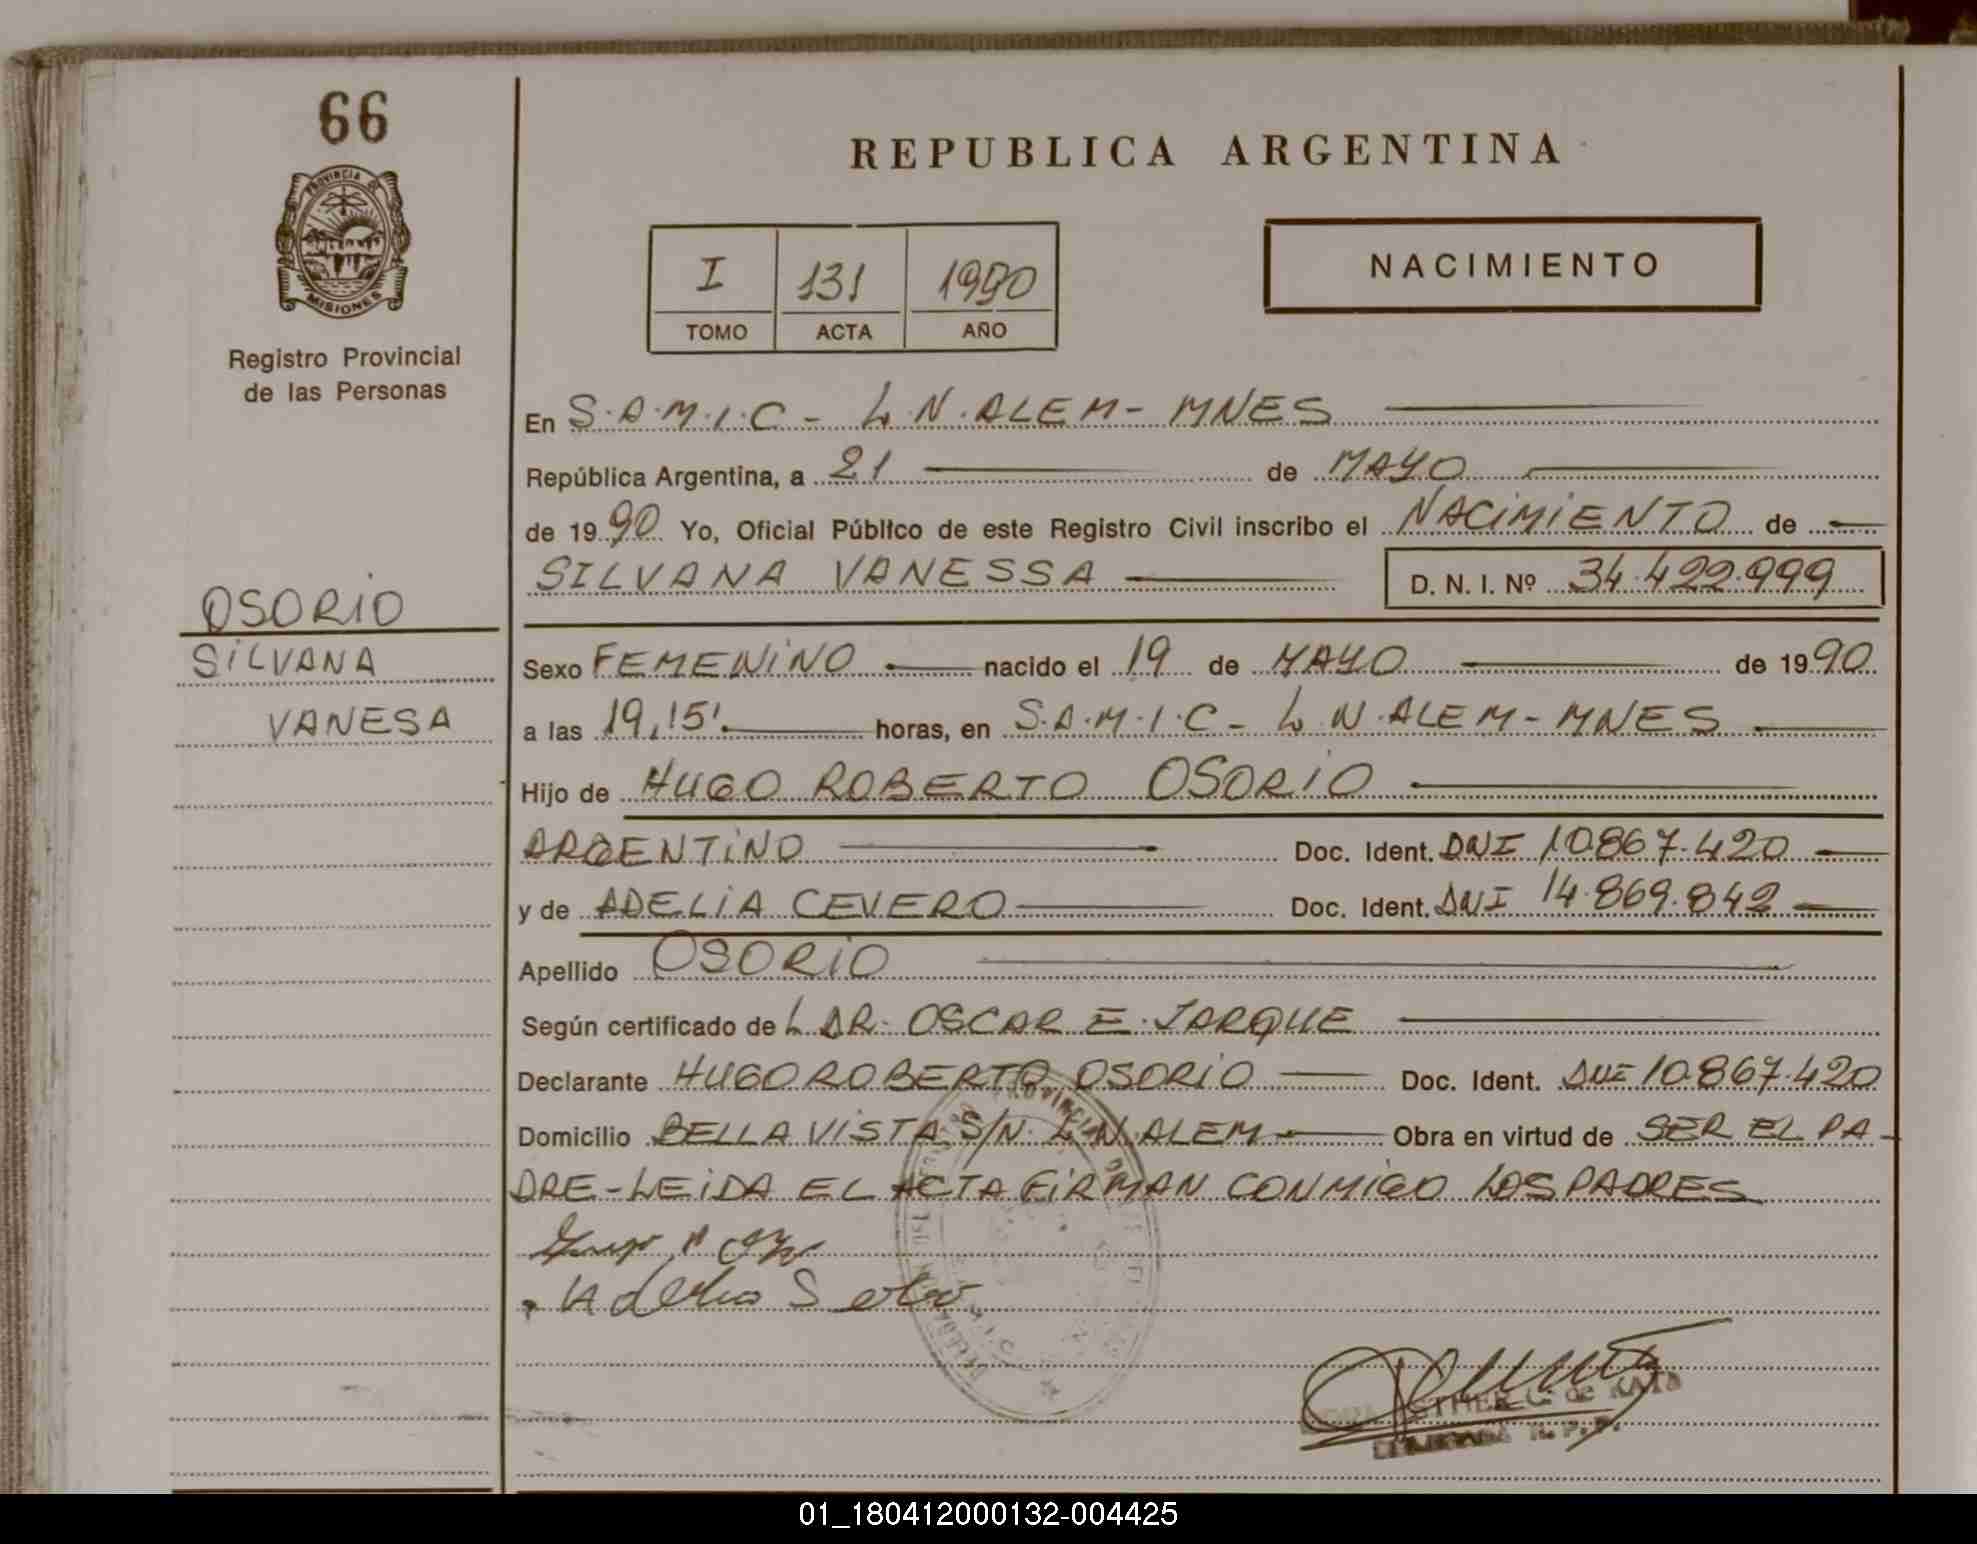 66
PROVINCIA DE
MISIONES
Registro Provincial
de las Personas
OSORIO
SILVANA
VANESA
REPUBLICA ARGENTINA
I 131 1990
TOMO ACTA AÑO
NACIMIENTO
En S.A.M.I.C - L.N.ALEM - MNES
República Argentina, a 21 de MAYO
de 1990 Yo, Oficial Público de este Registro Civil inscribo el NACIMIENTO de
SILVANA VANESSA D. N. I. Nº 34.422.999
Sexo FEMENINO nacido el 19 de MAYO de 1990
a las 19,15' horas, en S.A.M.I.C - L.N.ALEM - MNES
Hijo de HUGO ROBERTO OSORIO
ARGENTINO Doc. Ident. DNI 10.867.420
y de ADELIA CEVERO Doc. Ident. DNI 14.869.842
Apellido OSORIO
Según certificado de L DR. OSCAR E. JARQUE
Declarante HUGO ROBERTO OSORIO Doc. Ident. DNI 10.867.420
Domicilio BELLA VISTA S/N. L.N.ALEM Obra en virtud de SER EL PA-
DRE-LEIDA EL ACTA FIRMAN CONMIGO LOS PADRES
R.P.P.
01_180412000132-004425